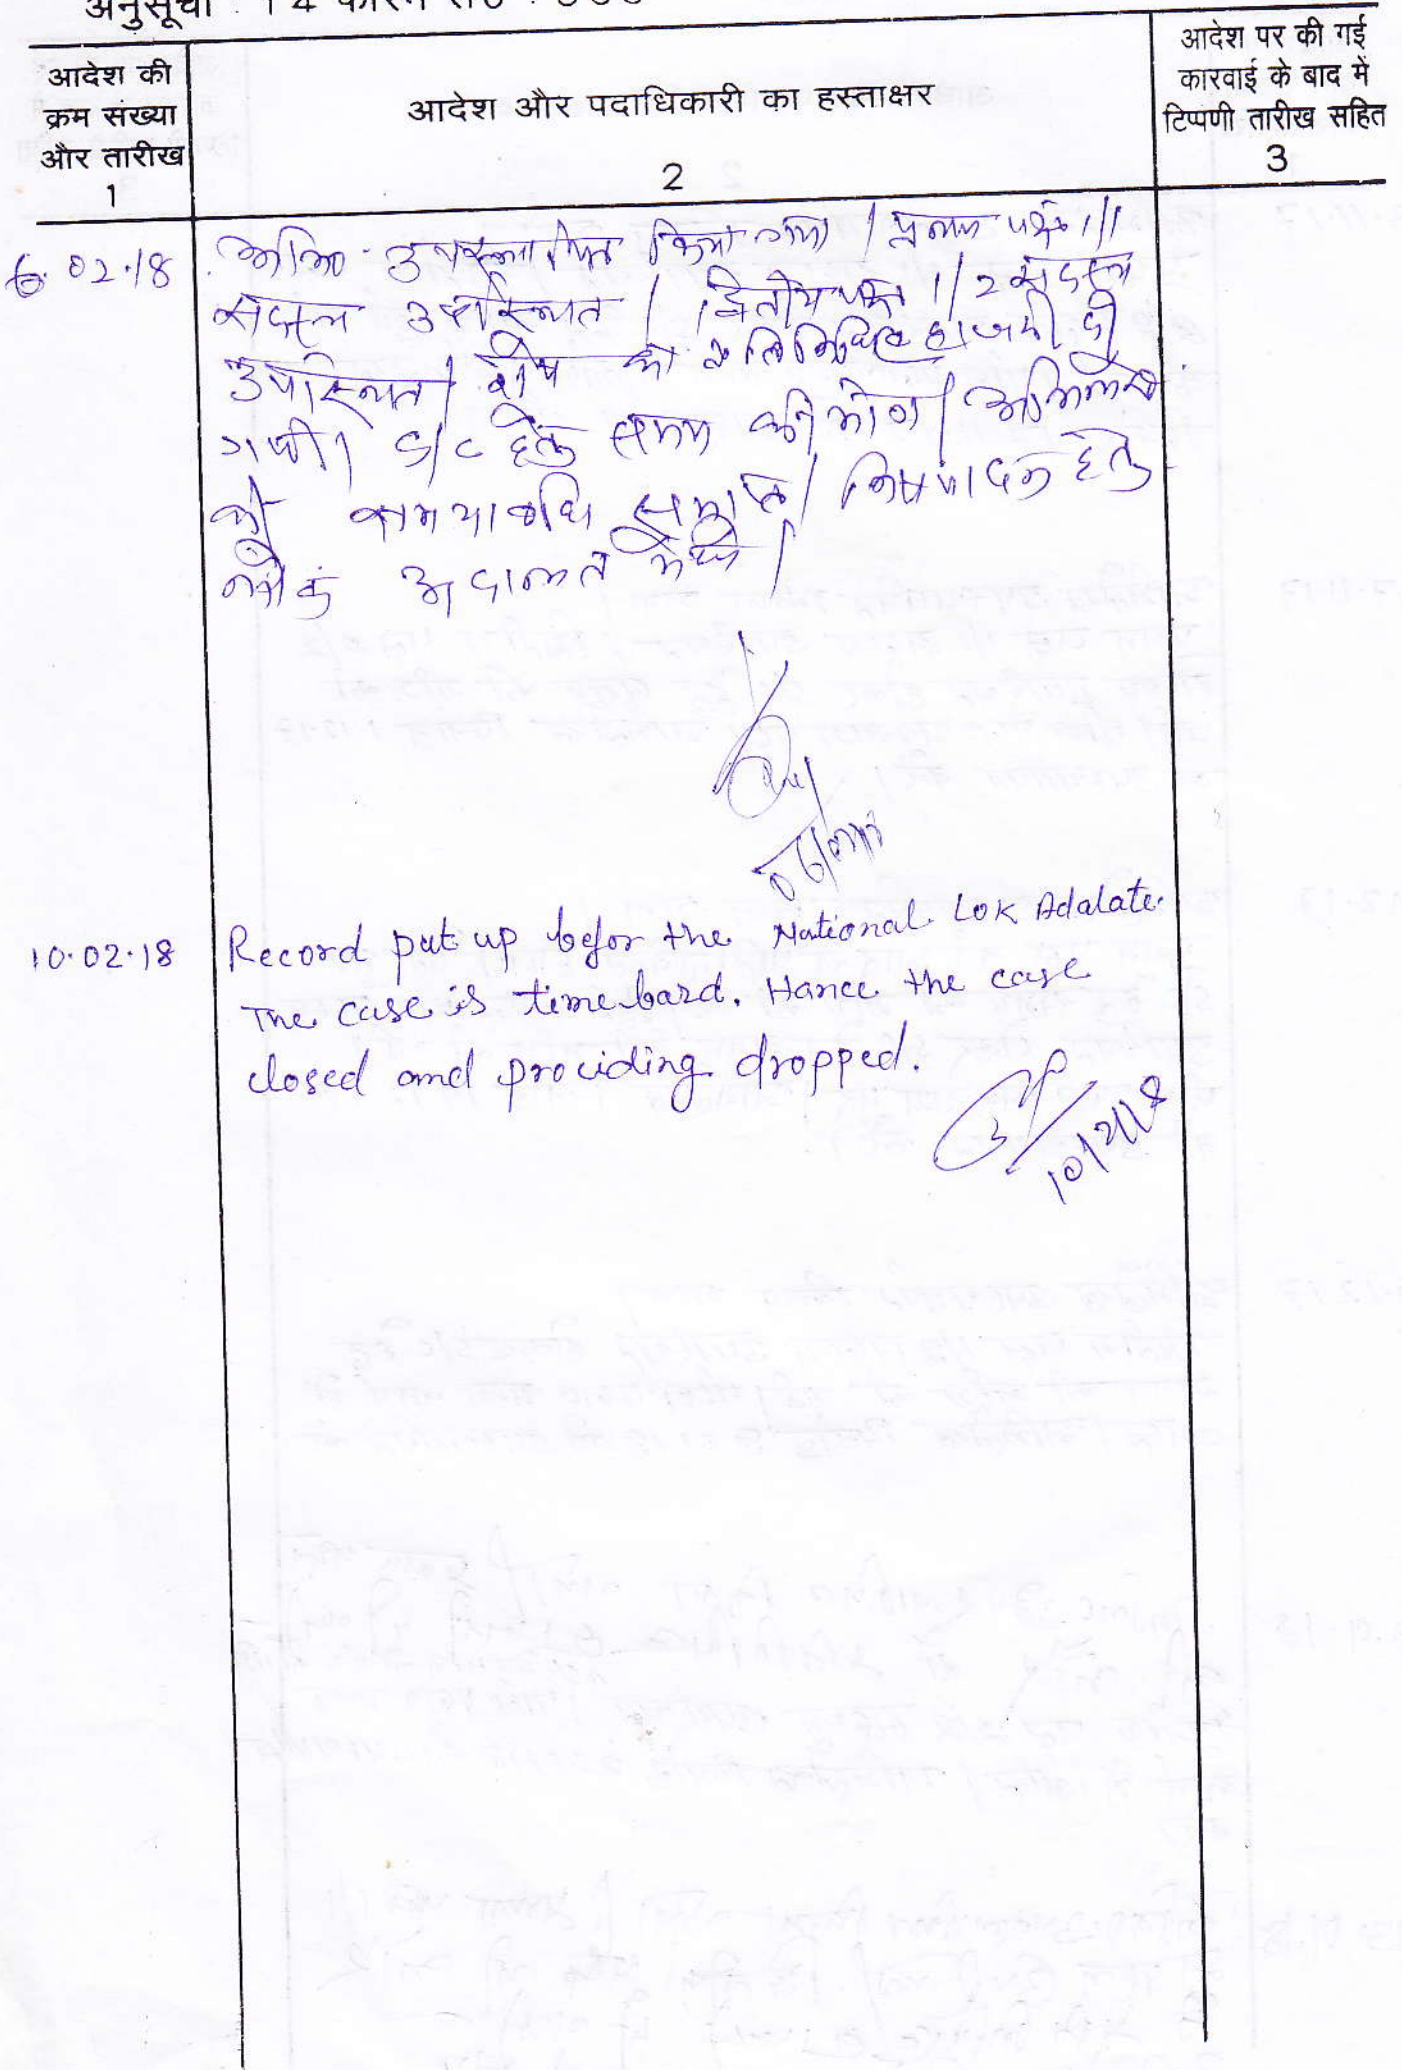 अनुसूची : 14 फारम सं०
आदेश की
क्रम संख्या
और तारीख
1
आदेश और पदाधिकारी का हस्ताक्षर
2
आदेश पर की गई
कारवाई के बाद में
टिप्पणी तारीख सहित
3
6.02.18
अभि० उपस्थापित किया गया / प्रथम पक्ष 1/1
सदस्य उपस्थित / द्वितीय पक्ष 1/2 सदस्य
उपस्थित / शेष की प्रतिनिधित्व हाजरी दी
गयी। S/C हेतु समय की मांग / अभिलेख
की समयावधि समाप्त / निष्पादन हेतु
लोक अदालत में रखें /
10.02.18
Record put up befor the National Lok Adalate.
The case is time bard. Hance the case
closed and prociding dropped.
10/2/18